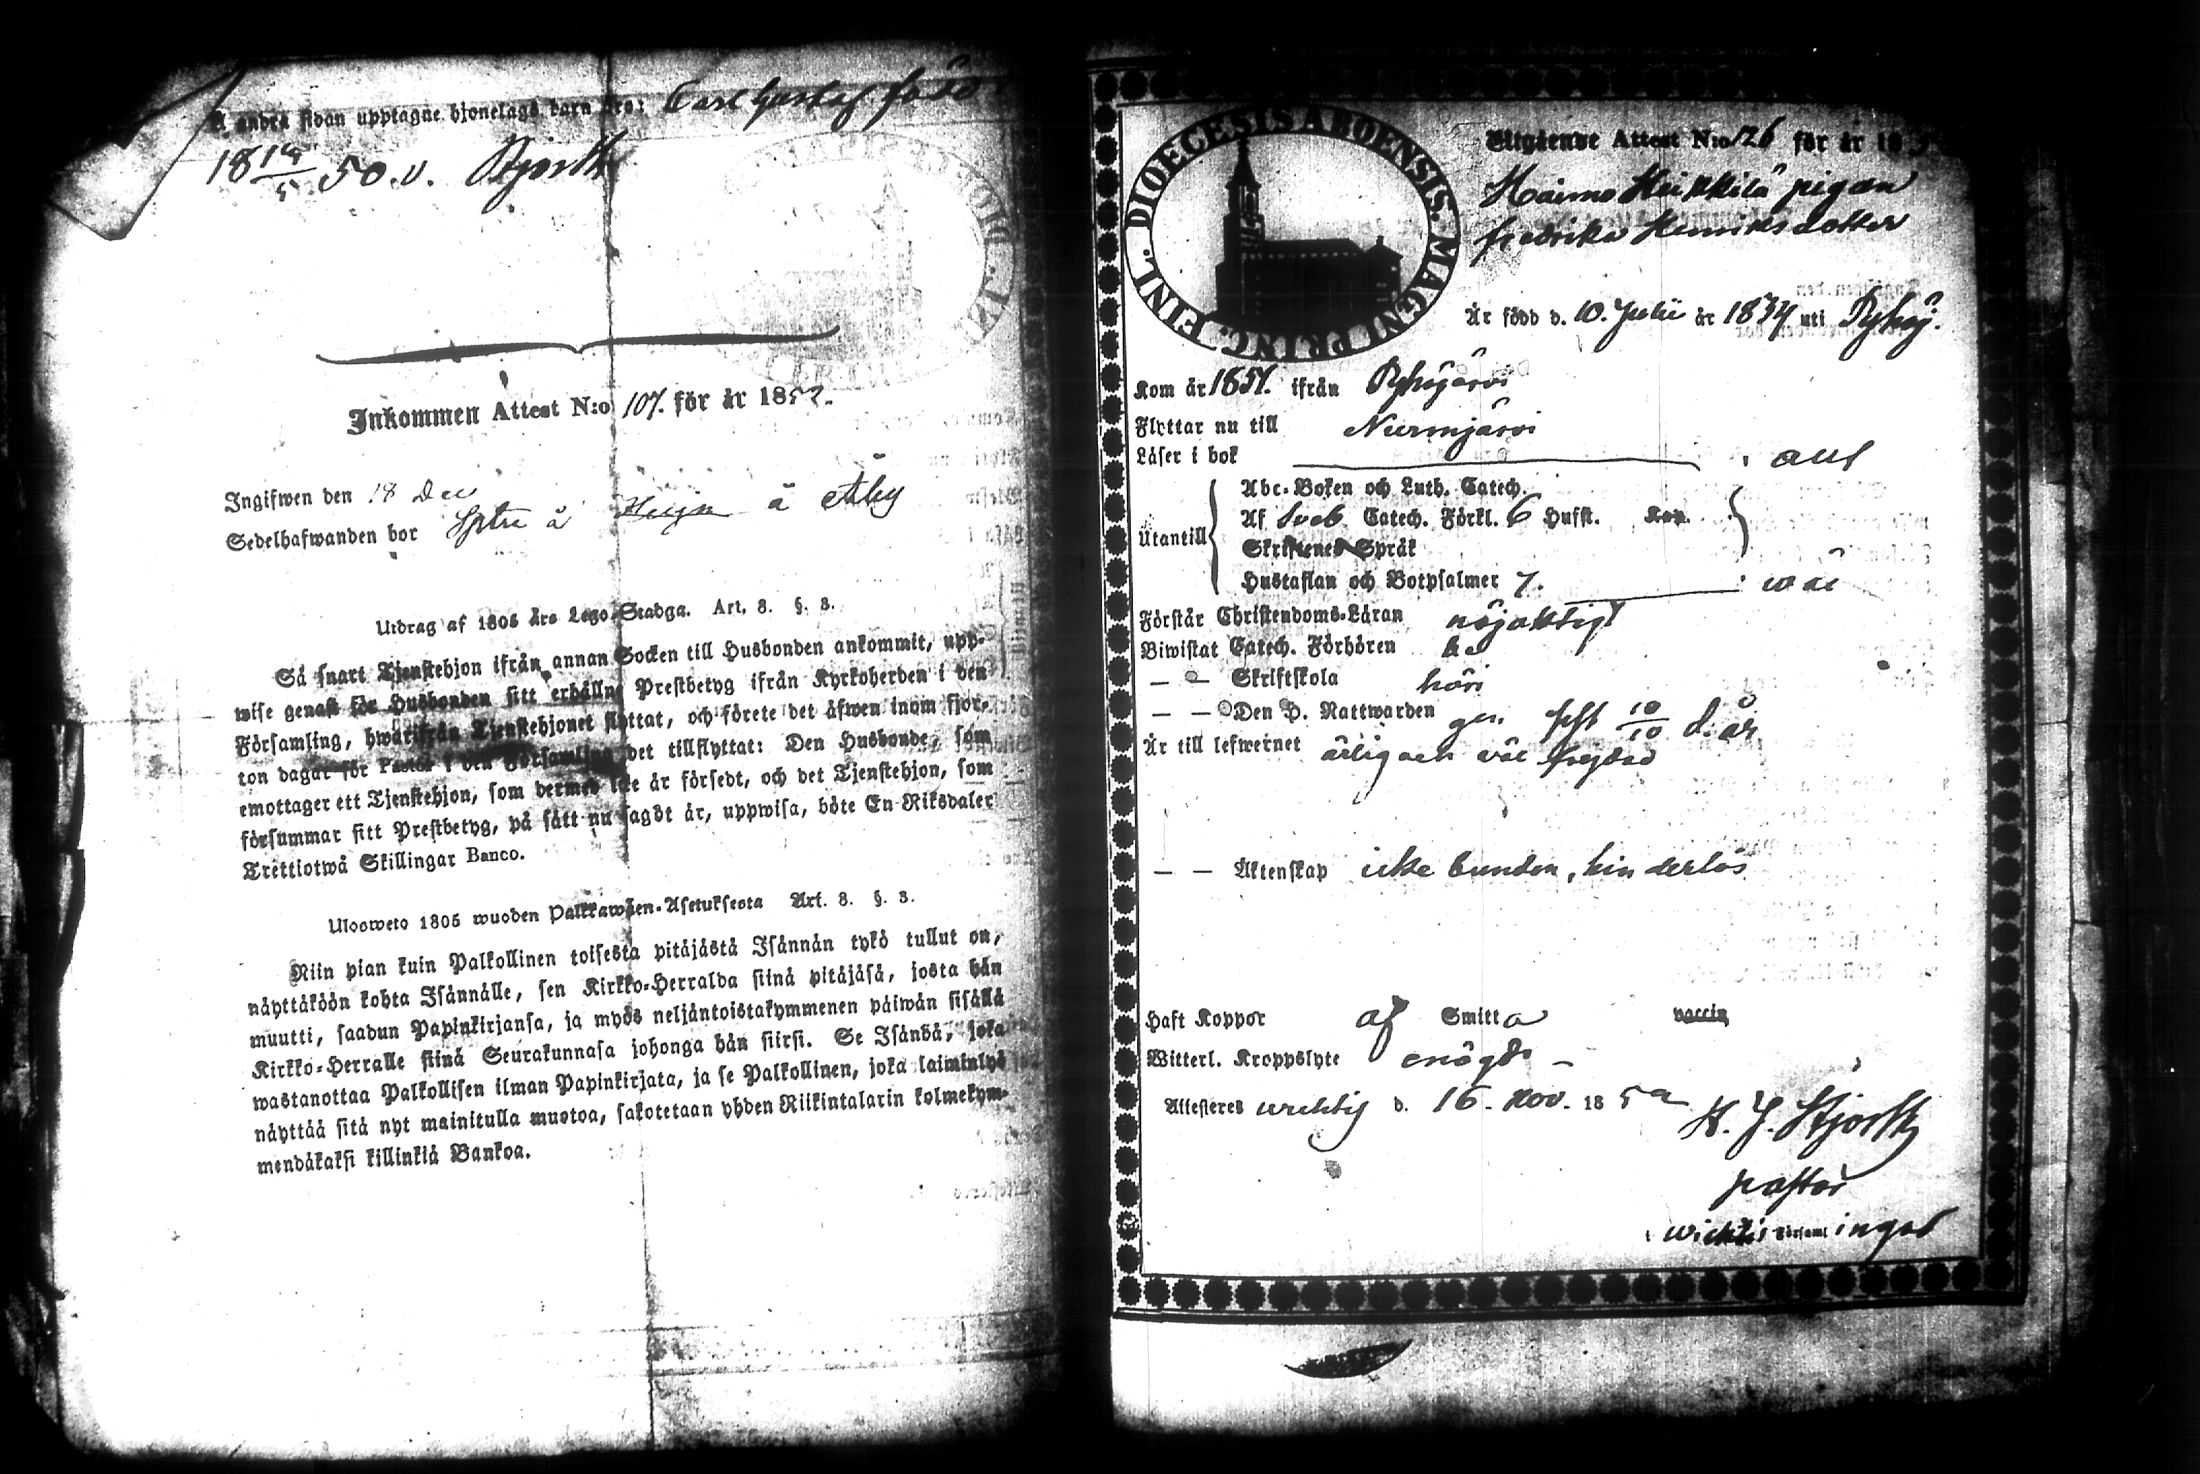 å andra sidan upptagne hjonelags barn äro: Carl Gustaf född
18 18/5 50. v. Stjorth
Inkommen Attest N:o 107. för år 1852.
Ingifwen den 18 Dec
Sedelhafwanden bor å Åby
Utdrag af 1805 års Lego-Stadga. Art. 8. §. 3.
Så snart Tjenstehjon ifrån annan Socken till Husbonden ankommit, upp-
wise genast för Husbonden sitt erhållne Prestbetyg ifrån Kyrkoherden i den
Församling, hwarifrån Tjenstehjonet flyttat, och förete det äfwen inom fjor-
ton dagar för Pastor i den Församling det tillflyttat: Den Husbonde, som
emottager ett Tjenstehjon, som dermed icke är försedt, och det Tjenstehjon, som
försummar sitt Prestbetyg, på sätt nu sagdt är, uppwisa, böte En Riksdaler
Trettiotwå Skillingar Banco.
Ulosweto 1805 wuoden Palkkawäen-Asetuksesta Art. 8. §. 3.
Niin pian kuin Palkollinen toisesta pitäjästä Isännän tykö tullut on,
näyttäköön kohta Isännälle, sen Kirkko-Herralda siinä pitäjäsä, josta hän
muutti, saadun Papinkirjansa, ja myös neljäntoistakymmenen päiwän sisällä
Kirkko-Herralle siinä Seurakunnasa johonga hän siirsi. Se Isändä, joka
wastanottaa Palkollisen ilman Papinkirjata, ja se Palkollinen, joka laiminlyö
näyttää sitä nyt mainitulla muotoa, sakotetaan yhden Riikintalarin kolmekym-
mendäkaksi killinkiä Bankoa.
DIOECESIS ABOENSIS. MAGNI PRINC. FINL.
Utgående Attest N:o 126 för år 18
Haimo Heikkilä pigan
Fredrika Henriksdotter
Är född d. 10. Julii år 1834 uti Pyhäj.
Kom år 1851. ifrån Pyhäjärvi
Flyttar nu till Nurmijärvi
Läser i bok
Utantill
Abc-Boken och Luth. Catech.
Af Sveb. Catech. Förkl. 6 Hufst. Kap.
Skriftenes Språk
Hustaflan och Botpsalmer 7. wäl
Förstår Christendoms-Läran nöjaktigt
Biwistat Catech. Förhören
— — Skriftskola
— — Den H. Nattwarden 10/10 d. år
Är till lefwernet ärlig och väl frejdad
— — Äktenskap icke bunden, hinderlös
Haft Koppor af Smitta vaccin
Witterl. Kroppslyte
Attesteres d. 16. Nov. 18 52
K. J. Stjorth
pastor
i Wichtis Församlingar